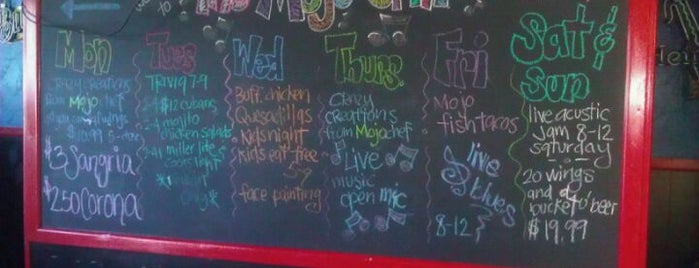 the Mojo Grill
Mon
Crazy Creations
from Mojo chef
$10.99 5-close
$3 Sangria
$2.50 Corona
Tues
Trivia 7-9
$12 cubans
mojito
chicken salads
miller lite
Coors light
Only*
Wed
Buff. chicken
Quesadillas
Kids night
Kids eat free
5-9
face painting
Thurs.
Crazy
Creations
from Mojo chef
Live
music
open mic
Fri
Mojo
fish tacos
live
blues
8-12
Sat &
Sun
live acustic
Jam 8-12
Saturday
20 wings
and a
bucket o' beer
$19.99